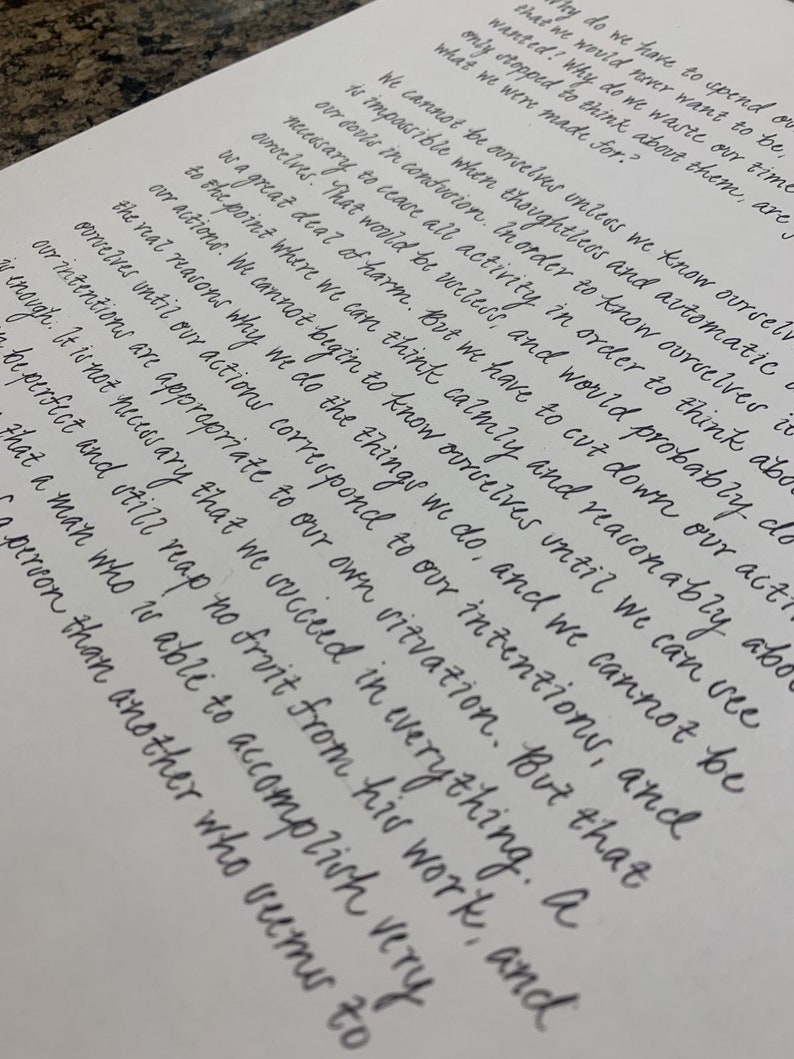 Why do we have to spend our
that we would never want to be,
wanted? Why do we waste our time
only stopped to think about them, are
what we were made for?
We cannot be ourselves unless we know ourselv
is impossible when thoughtless and automatic
our souls in confusion. In order to know ourselves it
necessary to cease all activity in order to think abou
ourselves. That would be useless, and would probably do
us a great deal of harm. But we have to cut down our activi
to the point where we can think calmly and reasonably abou
our actions. We cannot begin to know ourselves until we can see
the real reasons why we do the things we do, and we cannot be
ourselves until our actions correspond to our intentions, and
our intentions are appropriate to our own situation. But that
is enough. It is not necessary that we succeed in everything. A
n be perfect and still reap no fruit from his work, and
that a man who is able to accomplish very
a person than another who seems to